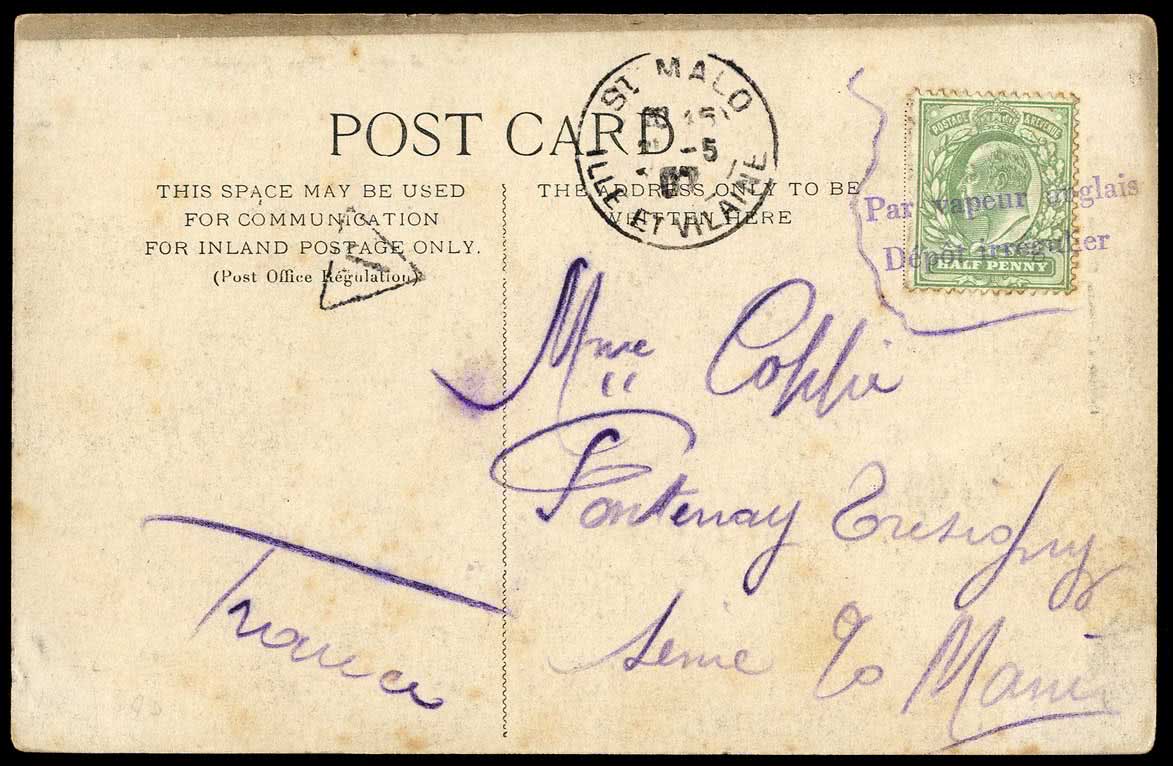 POST CARD
THIS SPACE MAY BE USED
FOR COMMUNICATION
FOR INLAND POSTAGE ONLY.
(Post Office Regulation)
THE ADDRESS ONLY TO BE
WRITTEN HERE
ST MALO
-5
ILLE ET VILAINE
POSTAGE & REVENUE
HALF PENNY
Par vapeur anglais
Dépôt irrégulier
T
Mme Coppie
Fontenay Tresigny
Seine & Marne
France